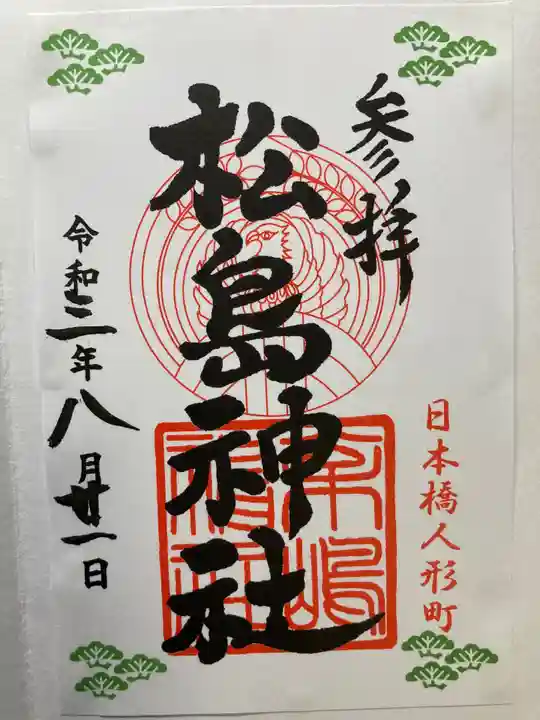 参拝
日本橋人形町
松島神社
令和三年八月廿一日